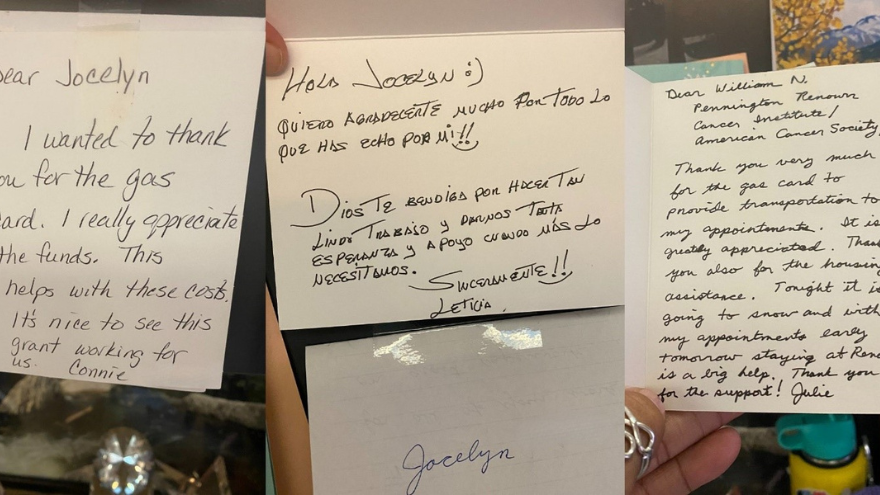 ear Jocelyn
I wanted to thank
ou for the gas
ard. I really appreciate
the funds. This
helps with these costs.
It's nice to see this
grant working for
us. Connie
Hola Jocelyn :)
Quiero agradecerte mucho por todo lo
que has echo por mi!!
Dios te bendiga por hacer tan
lindo trabajo y darnos tanta
esperanza y apoyo cuando más lo
necesitamos.
Sinceramente!!
Leticia.
Jocelyn
Dear William N.
Pennington Renown
Cancer Institute/
American Cancer Society,
Thank you very much
for the gas card to
provide transportation to
my appointments. It is
greatly appreciated. Thank
you also for the housing
assistance. Tonight it is
going to snow and with
my appointments early
tomorrow staying at Reno
is a big help. Thank you
for the support! Julie